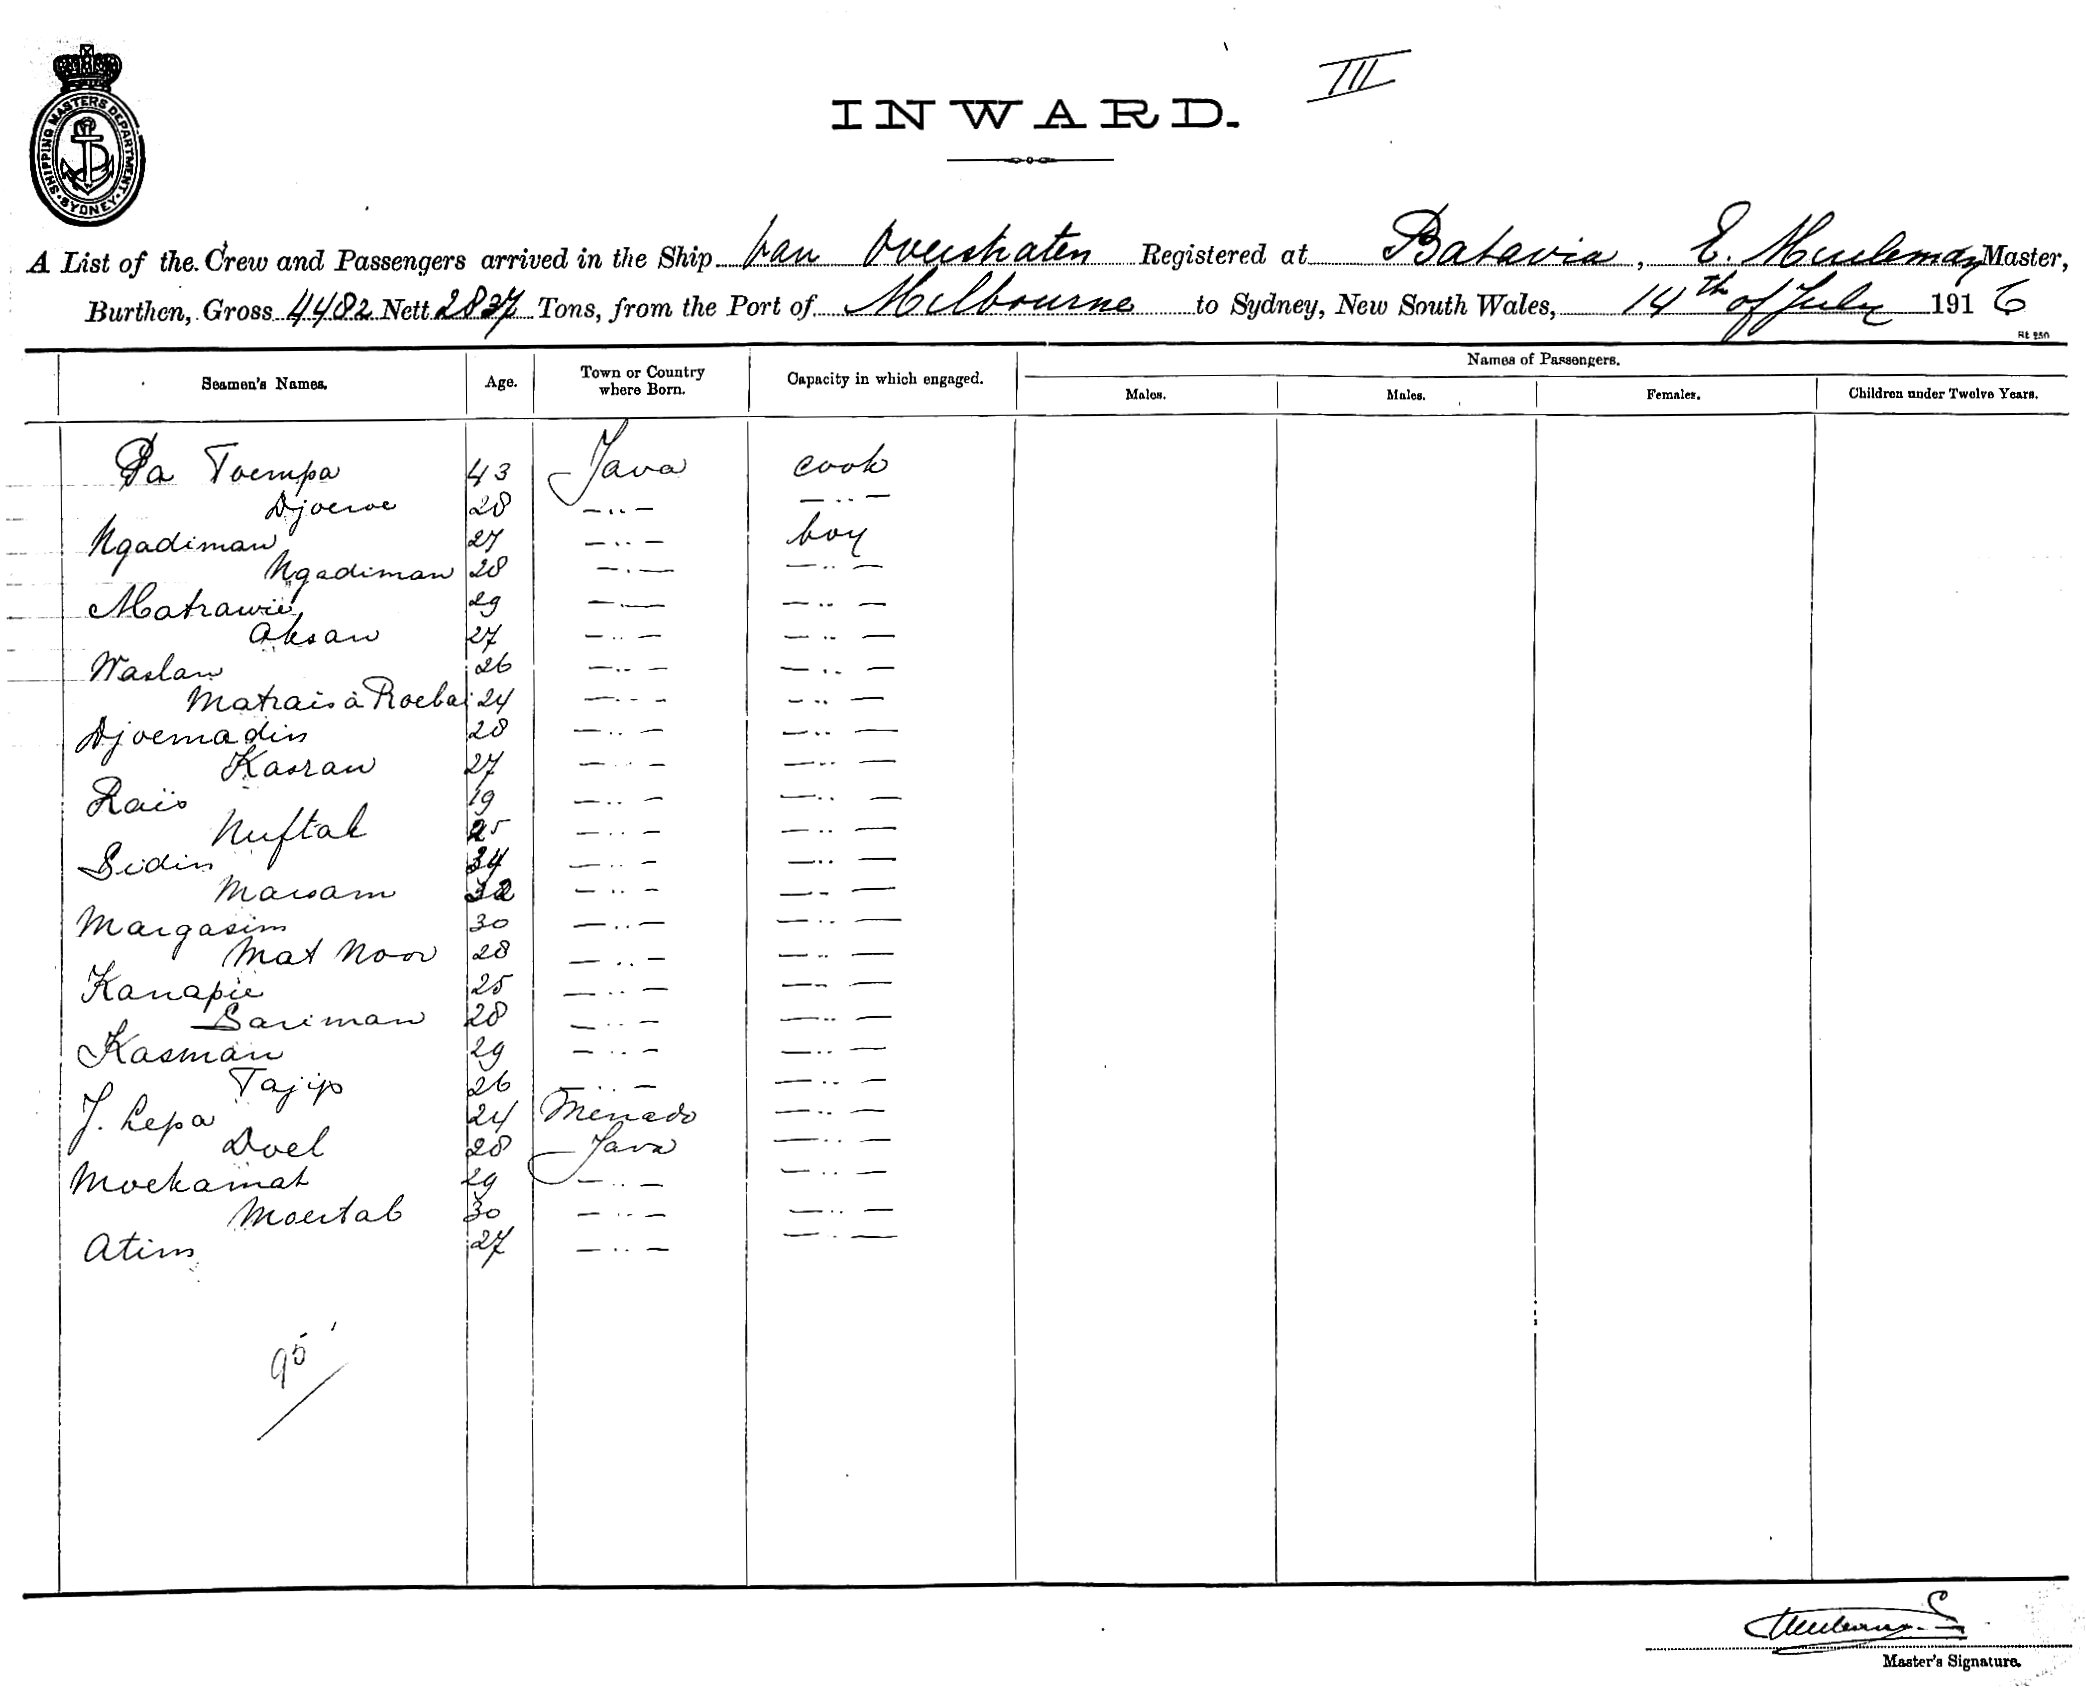 SHIPPING MASTERS DEPARTMENT
SYDNEY
III
INWARD.
A List of the Crew and Passengers arrived in the Ship van Overstraten Registered at Batavia, E. Meuleman Master,
Burthen, Gross 4482 Nett 2837 Tons, from the Port of Melbourne to Sydney, New South Wales, 14th of July 1916
Rt 250
Seamen's Names. Age. Town or Country where Born. Capacity in which engaged. Names of Passengers.
Males. Males. Females. Children under Twelve Years.
Pa Toempa 43 Java cook
Djoeroe 28 — .. — — .. —
Ngadiman 27 — .. — boy
Ngadiman 28 — . — — .. —
Matrawie 29 — . — — .. —
Aksan 27 — .. — — .. —
Waslan 26 — .. — — .. —
Matrais à Roebai 24 — .. — — .. —
Djoemadin 28 — .. — — .. —
Kasran 27 — .. — — .. —
Raïs 19 — .. — — .. —
Nuftal 25 — .. — — .. —
Sidin 34 — .. — — .. —
Marsam 32 — .. — — .. —
Margasim 30 — .. — — .. —
Mat Noor 28 — .. — — .. —
Kanapie 25 — .. — — .. —
Sariman 28 — .. — — .. —
Kasman 29 — .. — — .. —
Tajip 26 — .. — — .. —
J. Lepa 24 Menado — .. —
Doel 28 Java — .. —
Moekamat 29 — .. — — .. —
Moertab 30 — .. — — .. —
Atim 27 — .. — — .. —
95
Master's Signature.